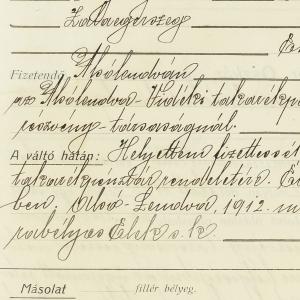 Zalaegerszeg
Fizetendő Alsólendván
az Alsólendva-Vidéki takarékp
részvény-társaságnál.
A váltó hátán: Helyettem fizettessék
takarékpénztár rendeletére.
ben: Alsó-Lendva, 1912. m
rabélyes Elek s. k.
Másolat fillér bélyeg.